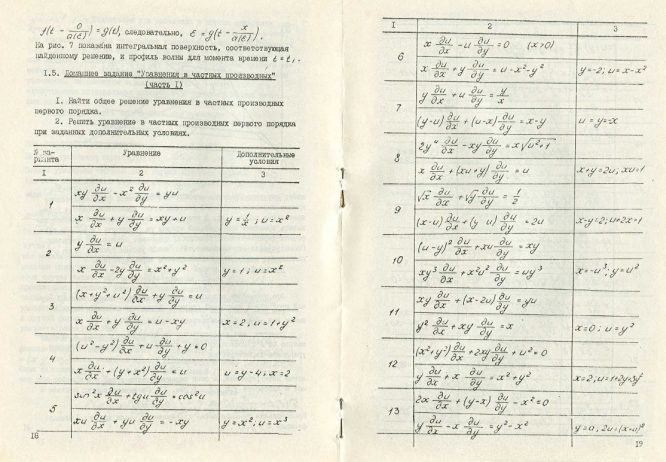 f(t - 0/a(ε)) = g(t), следовательно, ε = g(t - x/a(ε)).
На рис. 7 показана интегральная поверхность, соответствующая
найденному решению, и профиль волны для момента времени t = t₁.
1.5. Домашнее задание "Уравнения в частных производных"
(часть I)
I. Найти общее решение уравнения в частных производных
первого порядка.
2. Решить уравнение в частных производных первого порядка
при заданных дополнительных условиях.
№ ва-
рианта
Уравнение
Дополнительные
условия
I 2 3
1
xy ∂u/∂x - x² ∂u/∂y = yu
x ∂u/∂x + y ∂u/∂y = xy + u y = 1/x; u = x²
2
y ∂u/∂x = u
x ∂u/∂x - 2y ∂u/∂y = x² + y² y = 1; u = x²
3
(x + y² + u²) ∂u/∂x + y ∂u/∂y = u
x ∂u/∂x + y ∂u/∂y = u - xy x = 2; u = 1 + y²
4
(u² - y²) ∂u/∂x + u ∂u/∂y + y = 0
x ∂u/∂x + (y + x²) ∂u/∂y = u u = y - 4; x = 2
5
sin²x ∂u/∂x + tg u ∂u/∂y = cos²u
xu ∂u/∂x + yu ∂u/∂y = -xy y = x²; u = x³
18
I 2 3
6
x ∂u/∂x - u ∂u/∂y = 0 (x > 0)
x ∂u/∂x + y ∂u/∂y = u - x² - y² y = -2; u = x - x²
7
y ∂u/∂x + u ∂u/∂y = y/x
(y - u) ∂u/∂x + (u - x) ∂u/∂y = x - y u = y = -x
8
2y⁴ ∂u/∂x - xy ∂u/∂y = x√u² + 1
x ∂u/∂x + (xu + y) ∂u/∂y = u x + y = 2u; xu = 1
9
√x ∂u/∂x + √y ∂u/∂y = 1/2
(x - u) ∂u/∂x + (y u) ∂u/∂y = 2u x - y = 2; u + 2x = 1
10
(u - y)² ∂u/∂x + xu ∂u/∂y = xy
xy³ ∂u/∂x + x²u² ∂u/∂y = uy³ x = -u³; y = u²
11
xy ∂u/∂x + (x - 2u) ∂u/∂y = yu
y² ∂u/∂x + xy ∂u/∂y = x x = 0; u = y²
12
(x² + y²) ∂u/∂x + 2xy ∂u/∂y + u² = 0
y ∂u/∂x + x ∂u/∂y = x² + y² x = 2; u = 1 + 2y + 3y²
13
2x ∂u/∂x + (y - x) ∂u/∂y - x² = 0
y ∂u/∂x - x ∂u/∂y = y² - x² y = a; 2u = (x + a)²
19